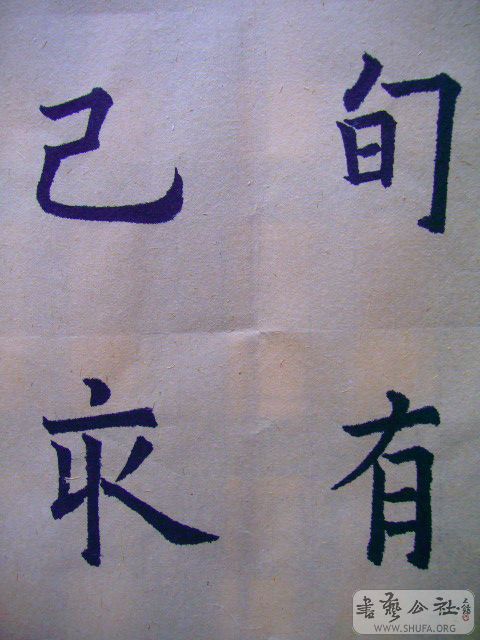 旬有
己亥
書藝公社
WWW.SHUFA.ORG